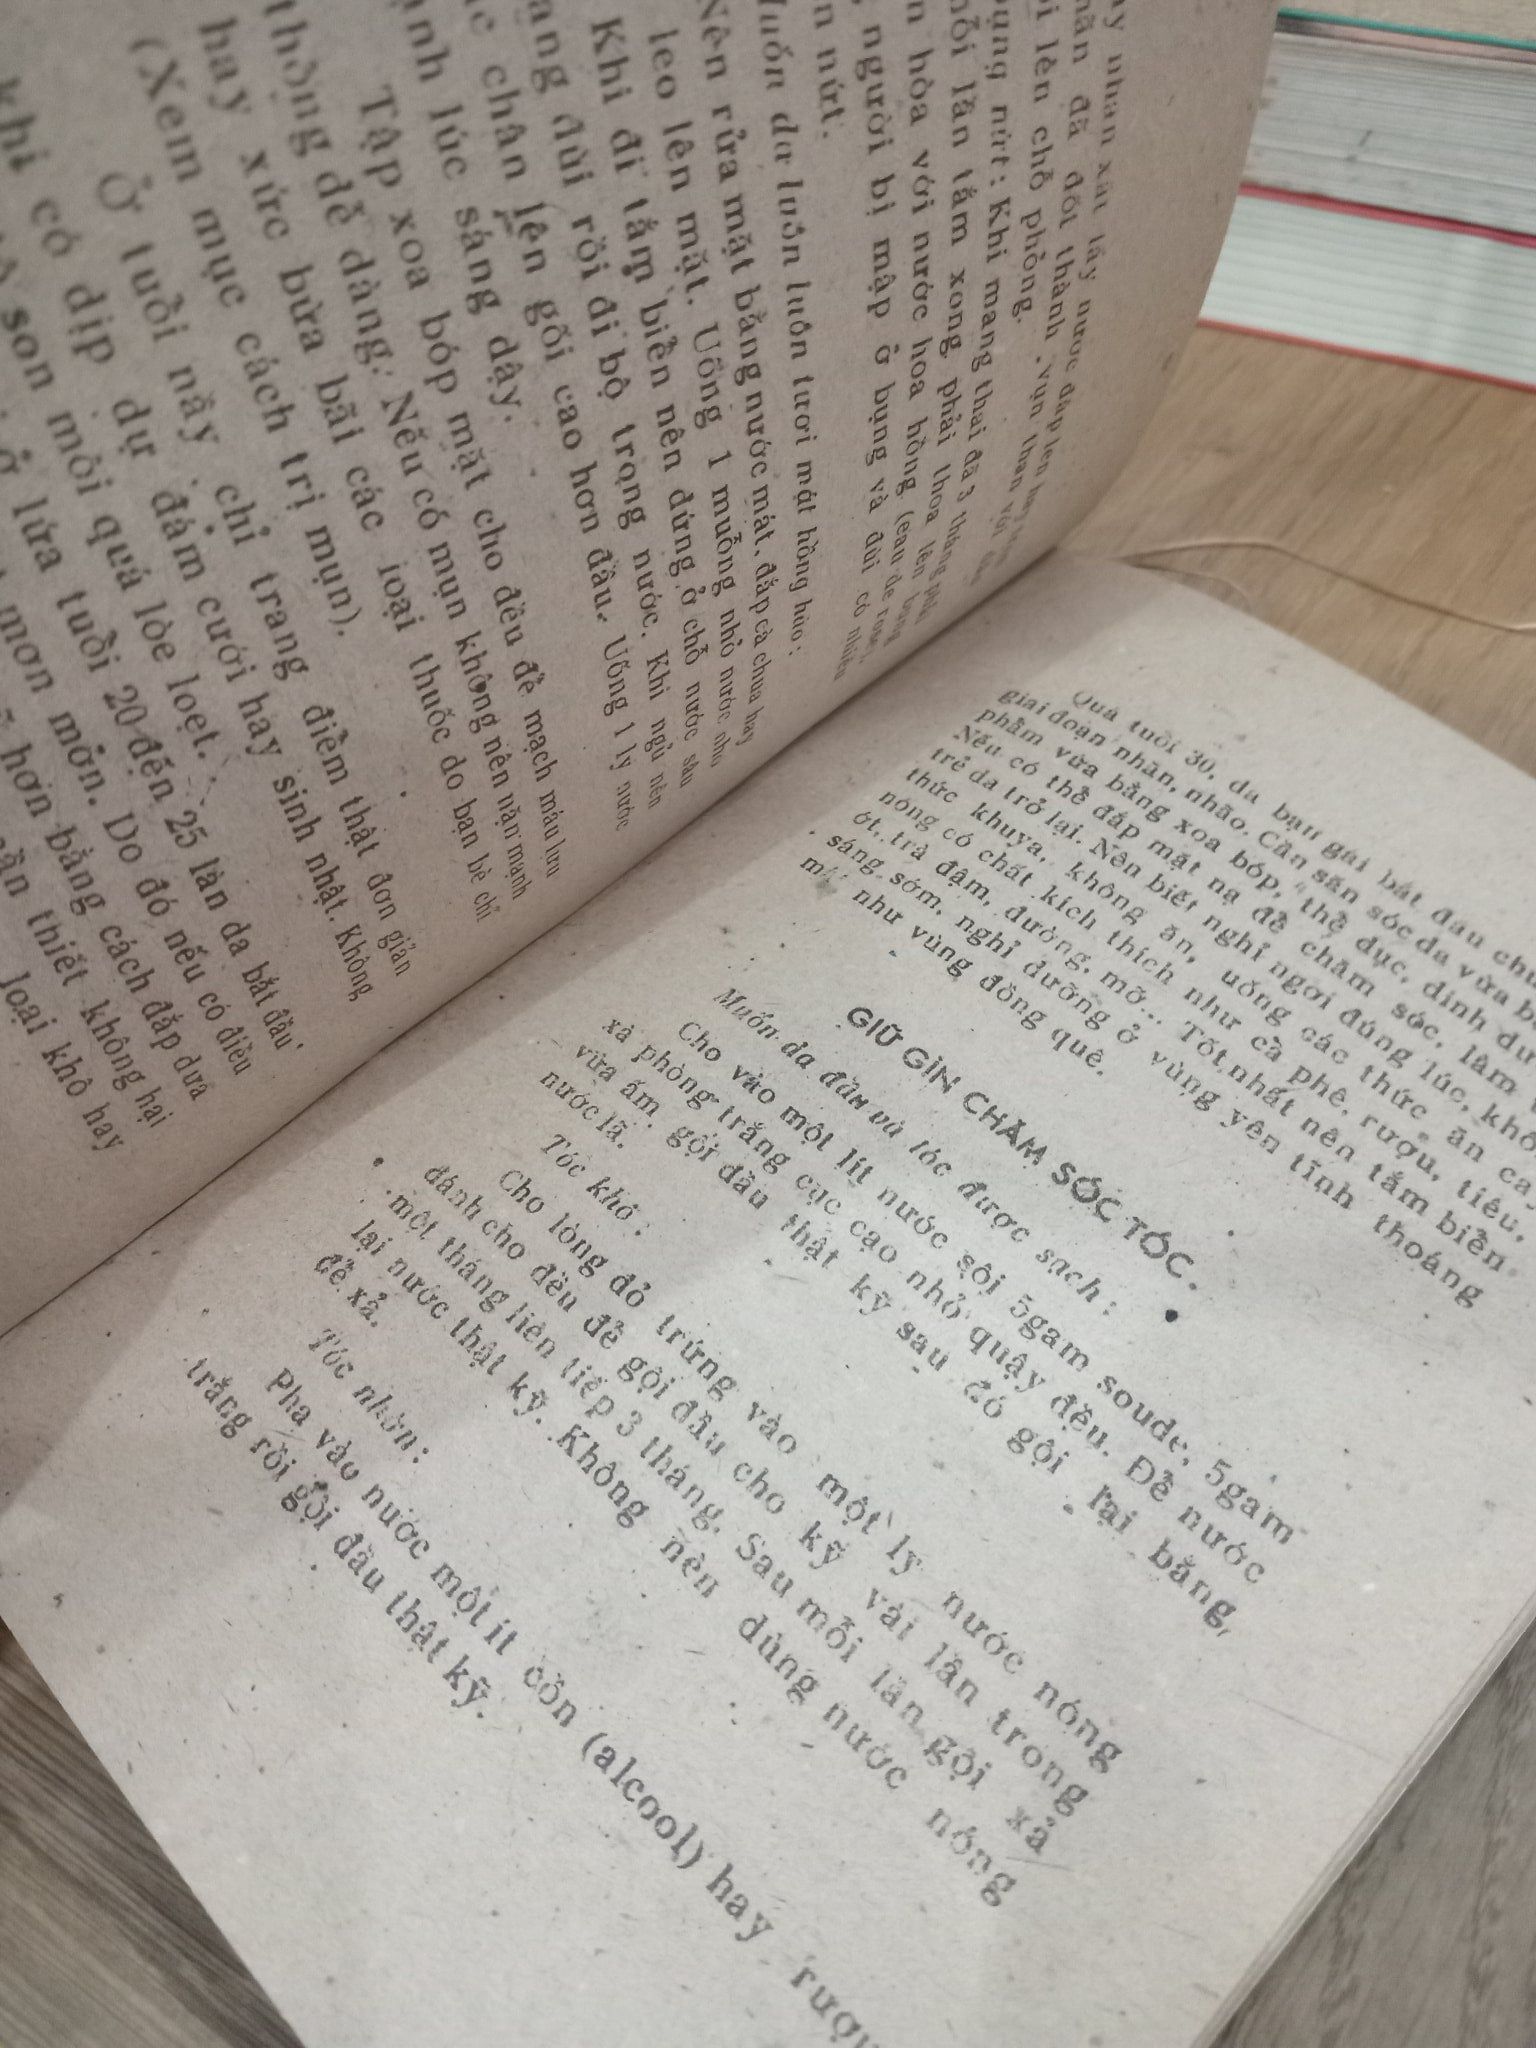 ay nhan xát lấy nước đắp lên hay
nhãn đã đốt thành vụn than với
ôi lên chỗ phồng.
bụng nứt: Khi mang thai đã 3 tháng phải
mỗi lần tắm xong phải thoa lên bụng
n hòa với nước hoa hồng (eau de rose),
người bị mập ở bụng và đùi có nhiều
n nứt.
Muốn da luôn luôn tươi mát hồng hào:
Nên rửa mặt bằng nước mát, đắp cà chua hay
leo lên mặt. Uống 1 muỗng nhỏ nước nho,
Khi đi tắm biển nên đứng ở chỗ nước sâu
ạng đùi rồi đi bộ trong nước. Khi ngủ nên
ác chân lên gối cao hơn đầu. Uống 1 ly nước
ạnh lúc sáng dậy.
Tập xoa bóp mặt cho đều để mạch máu lưu
thông dễ dàng: Nếu có mụn không nên nặn mạnh
hay xức bừa bãi các loại thuốc do bạn bè chỉ
(Xem mục cách trị mụn).
Ở tuổi nầy chỉ trang điểm thật đơn giản
khi có dịp dự đám cưới hay sinh nhật. Không
tô son môi quá lòe loẹt.
ở lứa tuổi 20 đến 25 làn da bắt đầu
mơn mởn. Do đó nếu có điều
hơn bằng cách đắp dưa
cần thiết không hại
loại khô hay
Quá tuổi 30, da bạn gái bắt đầu chu
giai đoạn nhăn, nhão. Cần săn sóc da vừa b
phẩm vừa bằng xoa bóp, thể dục, dinh dư
Nếu có thể đắp mặt nạ để chăm sóc, làm
trẻ da trở lại. Nên biết nghỉ ngơi đúng lúc, khô
thức khuya, không ăn, uống các thức ăn ca
nóng có chất kích thích như cà phê, rượu, tiêu,
ớt, trà đậm, đường, mỡ... Tốt nhất nên tắm biển
sáng sớm, nghỉ dưỡng ở vùng yên tĩnh thoáng
mát như vùng đồng quê.
GIỮ GÌN CHĂM SÓC TÓC.
Muốn da đầu và tóc được sạch:
Cho vào một lít nước sôi 5gam soude, 5gam
xà phòng trắng cục cạo nhỏ quậy đều. Để nước
vừa ấm, gội đầu thật kỹ sau đó gội lại bằng
nước lã.
Tóc khô:
Cho lòng đỏ trứng vào một ly nước nóng
đánh cho đều để gội đầu cho kỹ vài lần trong
một tháng liên tiếp 3 tháng. Sau mỗi lần gội xả
lại nước thật kỹ. Không nên dùng nước nóng
để xả.
Tóc nhờn:
Pha vào nước một ít cồn (alcool) hay rượu
trắng rồi gội đầu thật kỹ.